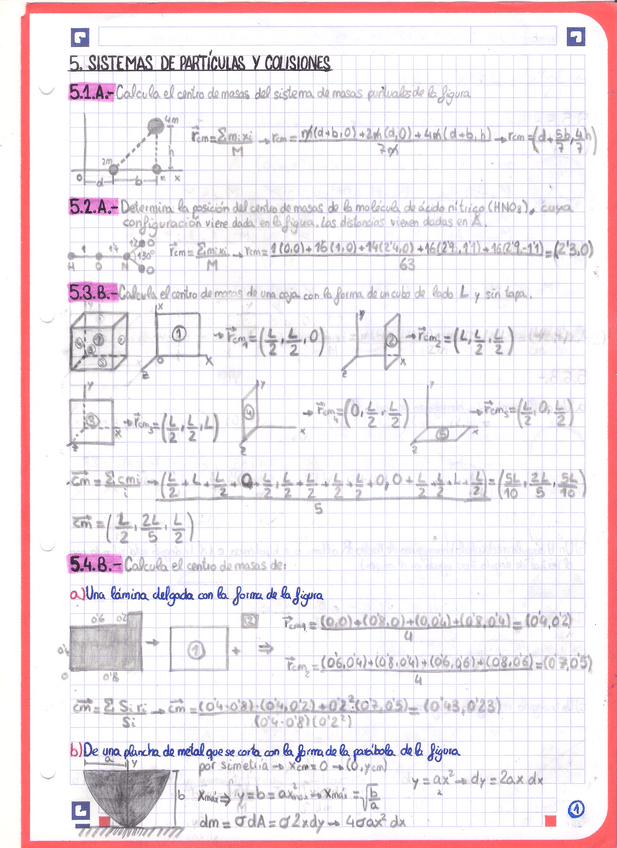 5. SISTEMAS DE PARTÍCULAS Y COLISIONES
5.1.A.- Calcula el centro de masas del sistema de masas puntuales de la figura
4m
2m
h
0 d b m x
r⃗cm = Σmixi/M → rcm = (m(d+b,0)+2m(d,0)+4m(d+b,h))/7m → rcm = (d+5b/7, 4h/7)
5.2.A.- Determina la posición del centro de masas de la molécula de ácido nítrico (HNO3), cuya
configuración viene dada en la figura. Las distancias vienen dadas en Å.
1 1'4 O
H O N 130º
O
r⃗cm = Σmixi/M → rcm = (1(0,0)+16(1,0)+14(2'4,0)+16(2'9,1'1)+16(2'9,-1'1))/63 = (2'3,0)
5.3.B.- Calcula el centro de masas de una caja con la forma de un cubo de lado L y sin tapa.
① → r⃗cm1 = (L/2, L/2, 0)
② → r⃗cm2 = (L, L/2, L/2)
③ → r⃗cm3 = (L/2, L/2, L)
④ → r⃗cm4 = (0, L/2, L/2)
⑤ → r⃗cm5 = (L/2, 0, L/2)
c⃗m = Σcmi/i → (L/2 + L + L/2 + 0 + L/2, L/2 + L/2 + L/2 + L/2 + 0, 0 + L/2 + L + L/2 + L/2)/5 = (5L/10, 2L/5, 5L/10)
c⃗m = (L/2, 2L/5, L/2)
5.4.B.- Calcula el centro de masas de:
a) Una lámina delgada con la forma de la figura
0'6 0'2
0'4
0 0'8
→ ① + ② ⇒
r⃗cm1 = ((0,0)+(0'8,0)+(0,0'4)+(0'8,0'4))/4 = (0'4,0'2)
r⃗cm2 = ((0'6,0'4)+(0'8,0'4)+(0'6,0'6)+(0'8,0'6))/4 = (0'7,0'5)
c⃗m = ΣSiri/Si → c⃗m = ((0'4·0'8)·(0'4,0'2)+0'2²·(0'7,0'5))/((0'4·0'8)(0'2²)) = (0'43,0'23)
b) De una plancha de metal que se corta con la forma de la parábola de la figura
a y
b
por simetría → xcm=0 → (0,ycm)
y = ax² → dy = 2ax dx
xmáx ⇒ y = b = ax²máx → xmáx = √(b/a)
dm = σdA = σ2xdy → 4σax² dx
1